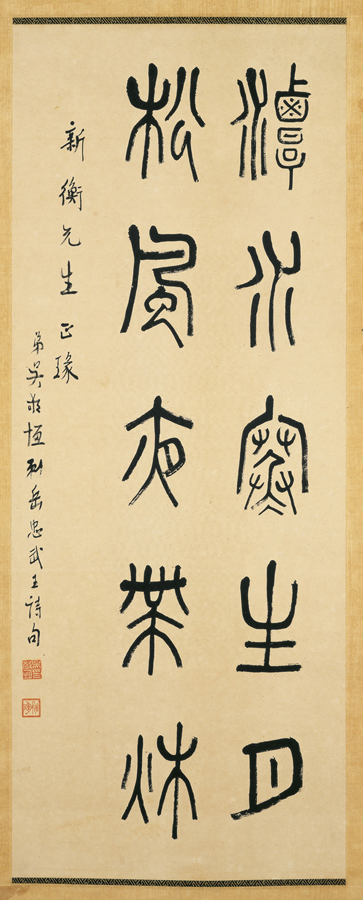 潭水寒生月
松風夜帶秋
新衡先生正瑑
弟吳敬恒岳忠武王詩句